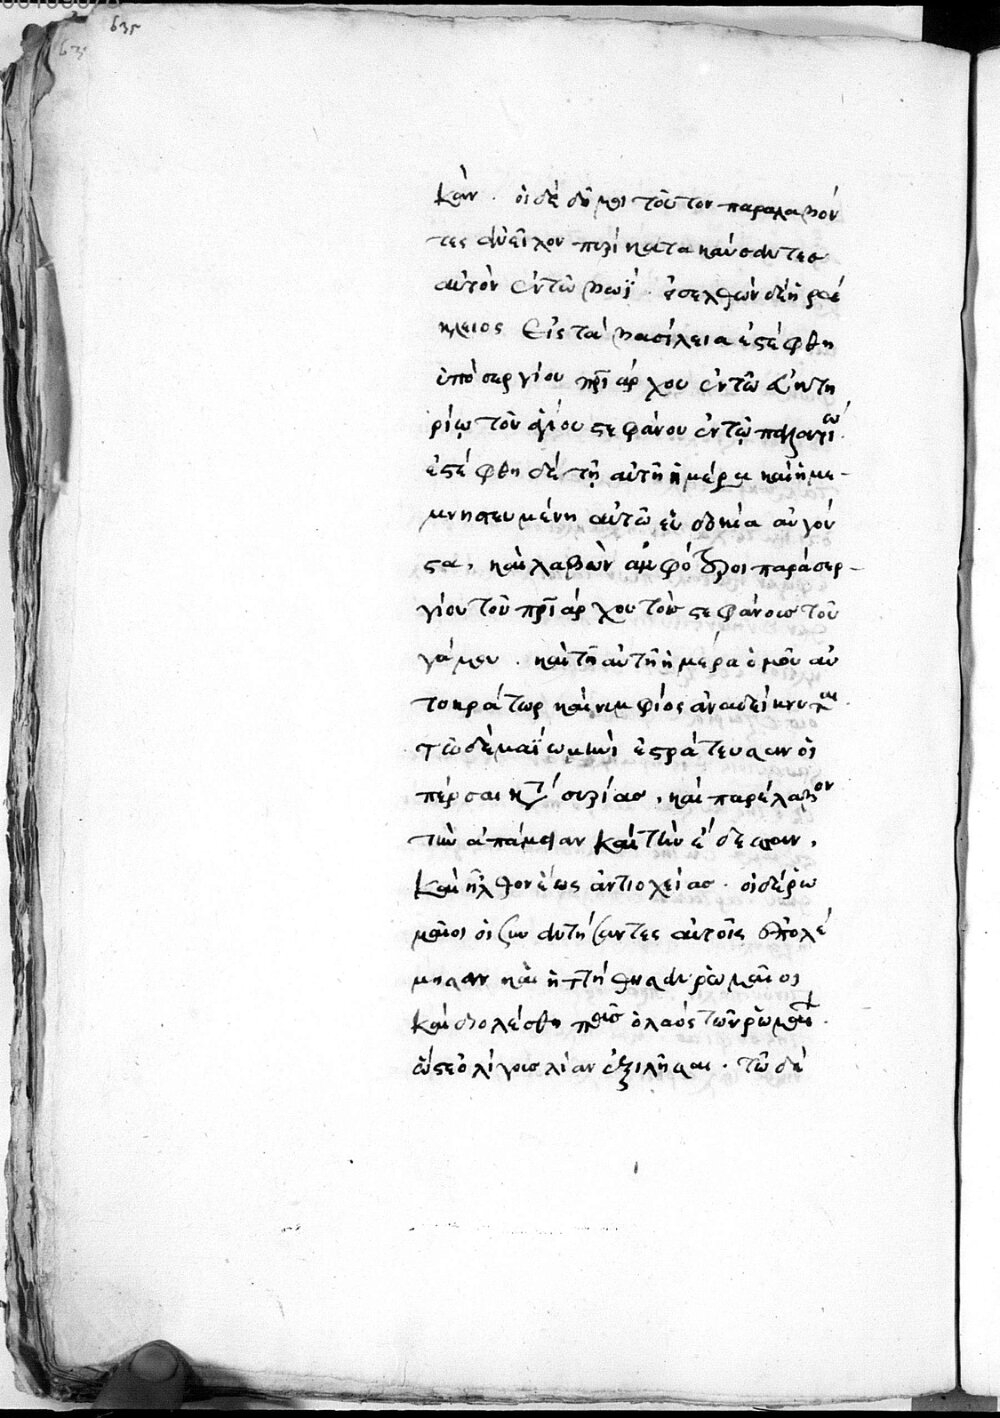 635
635
καν. οἱ δὲ δῆμοι τοῦτον παραλαβόν
τες ἀνεῖλον πελέκει κατακαύσαντες
αὐτὸν ἐν τῶ βοΐ. ἐσελθὼν δὲ ἡρά
κλειος εἰς τὰ βασίλεια ἐστέφθη
ὑπὸ σεργίου πριάρχου ἐν τῶ εὐκτη
ρίῳ τοῦ ἁγίου στεφάνου ἐν τῷ παλατίω.
ἐστέφθη δὲ τῇ αὐτῆ ἡμέρα καὶ ἡ με-
μνηστευμένη αὐτῶ εὐδοκία αὐγού
στα, καὶ λαβὼν ἀμφότεροι παρὰ σερ-
γίου τοῦ πριάρχου τοὺς στεφάνους τοῦ
γάμου. καὶ τῆ αὐτῆ ἡμέρα ὁμοῦ αὐ
τοκράτωρ καὶ νυμφίος ἀναδείκνυται
τῶ δὲ μαΐω μηνὶ ἐστράτευσαν οἱ
πέρσαι κτ συρίας, καὶ παρέλαβον
τὴν ἀπάμειαν καὶ τὴν ἔδεσαν,
καὶ ἦλθον ἕως ἀντιοχείας. οἱ δὲ ῥω
μαῖοι οἱ συναντήσαντες αὐτοῖς ἐπολέ
μησαν καὶ ἡττήθησαν ῥωμαῖοι
καὶ ἀπολέσθη πᾶς ὁ λαὸς τῶν ῥωμαίων.
ὥστε ὀλίγους λίαν ἐξειλῆσαι. τῶ δὲ